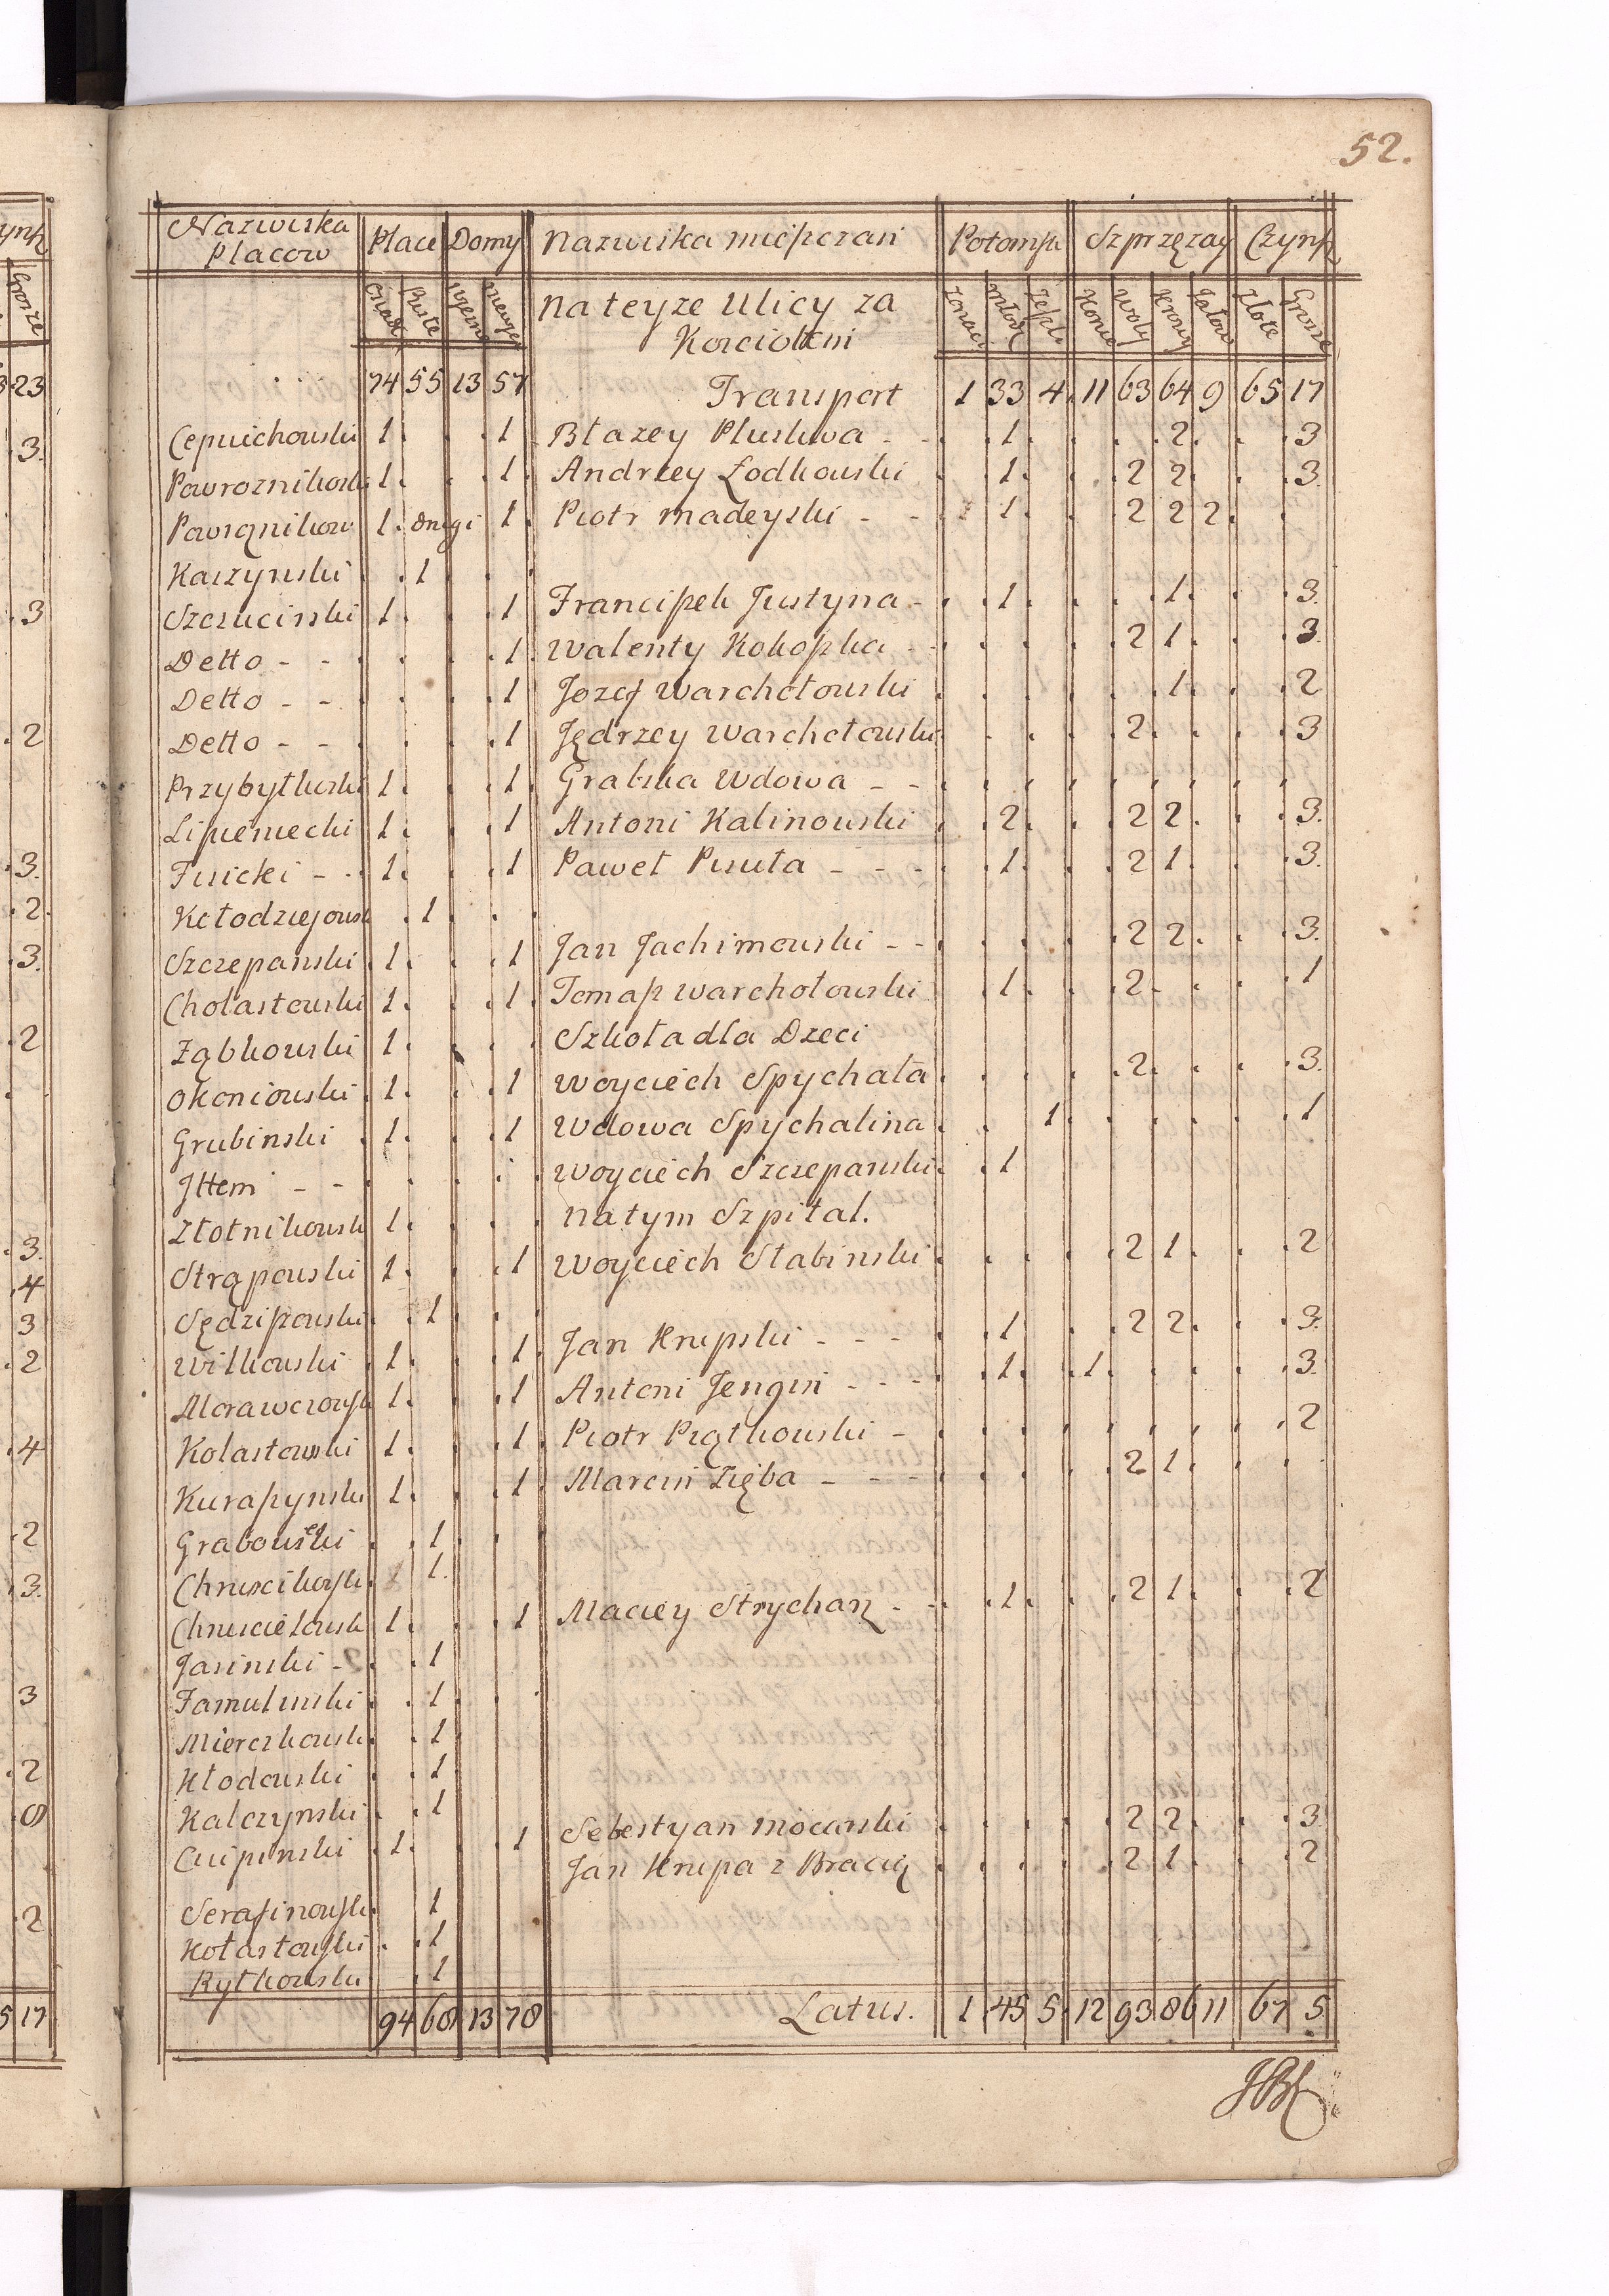 52.
Nazwiska Placow | Place | Domy | Nazwiska mieszczan | Potomst | Szprzęzay | Czynsz
Osiad | Puste | | | Na teyze Ulicy za Kosciołem | Zonaci | młodz | | Konie | Woły | Krowy | Jałow | Złote | Grosze
74 55 13 57 Transport 1 33 4 11 63 64 9 65 17
1 . . 1 Błazey Pluskwa - 1 . . . 2 . . 3
Powroznikowski 1 . . 1 Andrzey Łodkowski . 1 . . 2 2 . . 3
1 . drugi 1 Piotr Madeyski - - 1 . . 2 2 2 . .
Kaczynski . 1 . .
Szczucinski 1 . . 1 Franciszek Justyna - . 1 . . . 1 . . 3
Detto - - . . . 1 Walenty Kokoszka - . . . . 2 1 . . 3
Detto - - . . . 1 Jozef Warchołowski . . . . . 1 . . 2
Detto - - . . . 1 Jędrzey Warchołowski . . . . 2 . . . 3
Przybytkowski 1 . . 1 Grabska Wdowa - - . . . . . . . . .
Lipieniecki 1 . . 1 Antoni Kalinowski . 2 . . 2 2 . . 3
1 . . 1 Paweł - - - 1 . . 2 1 . . 3
Kołodzieyowsk . 1 . .
Szczepanski . 1 . . 1 Jan Jachimowski - - . . . . 2 2 . . 3
Chołastowski 1 . . 1 Tomasz Warchołowski 1 . . 2 . . . 1
Ząbkowski 1 . . . Szkoła dla Dzeci
Okoniowski . 1 . . 1 Woyciech Spychała . . . . 2 . . . 3
Grubinski . 1 . . 1 Wdowa Spychalina . . 1 . . . . . 1
Jttem - - . . . . Woyciech Szczepanski . 1
Złotnikowsk 1 . . . na tym Szpital.
Strąpowski 1 . . 1 Woyciech Stabinski . . . . 2 1 . . 2
Sędziszowski . 1 . .
Wilkowski . 1 . . 1 Jan Krupski - - - . 1 . . 2 2 . . 3
Morawczowsk 1 . . 1 Antoni - - - 1 . 1 . . . . 3
Kolastowski 1 . . 1 Piotr Piątkowski - . . . . . . . . 2
Kuraszynski 1 . . 1 Marcin Zięba - - - . . . . 2 1 . . .
. 1 . .
Chruscikowsk . 1 .
Chruscielowsk 1 . . 1 Maciey Strycharz - - . 1 . . 2 1 . . 2
Jasinski - . 1
Famulinski . . 1 . .
Mierczkowsk . . 1
Kłodowski . . 1
Kalczynski . . 1
. 1 . . 1 Sebestyan Mocarski . . . . 2 2 . . 3
Jan Krupa z Bracią . . . . 2 1 . . 2
Serafinowsk . 1
Kołastowski . . 1
Rytkowski . 1
94 68 13 78 Latus. 1 45 5 12 93 86 11 67 5